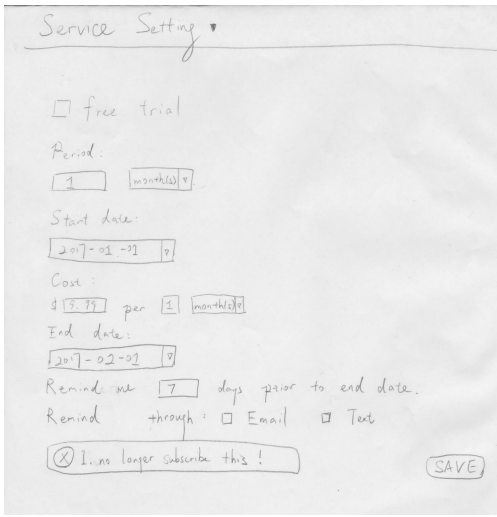 Service Setting
free trial
Period:
1 month(s)
Start date:
2017-01-01
Cost:
$ 9.99 per 1 month(s)
End date:
2017-02-01
Remind me 7 days prior to end date.
Remind through: Email Text
X I no longer subscribe this!
SAVE